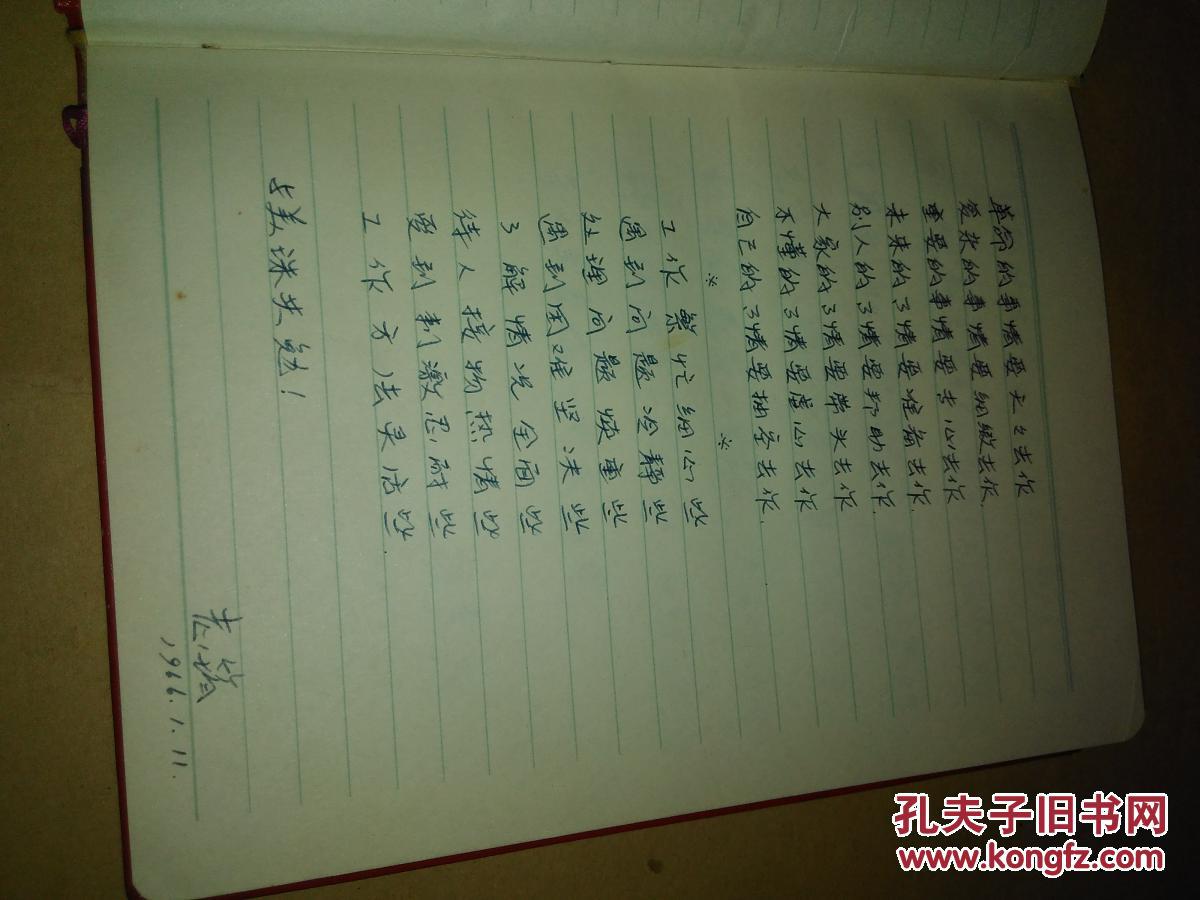 革命的事情要天々去作
复杂的事情要细緻去作.
重要的事情要专心去作
未来的事情要准备去作.
别人的事情要邦助去作.
大家的事情要带头去作
不懂的事情要虚心去作
自己的事情要抽空去作.
※ ※
工作繁忙细心些
遇到问题冷静些
处理问题慎重些
遇到困难坚决些
了解情况全面些
待人接物热情些
受到刺激忍耐些
工作方法灵活些.
与美共勉!
1966.1.11.
孔夫子旧书网
www.kongfz.com